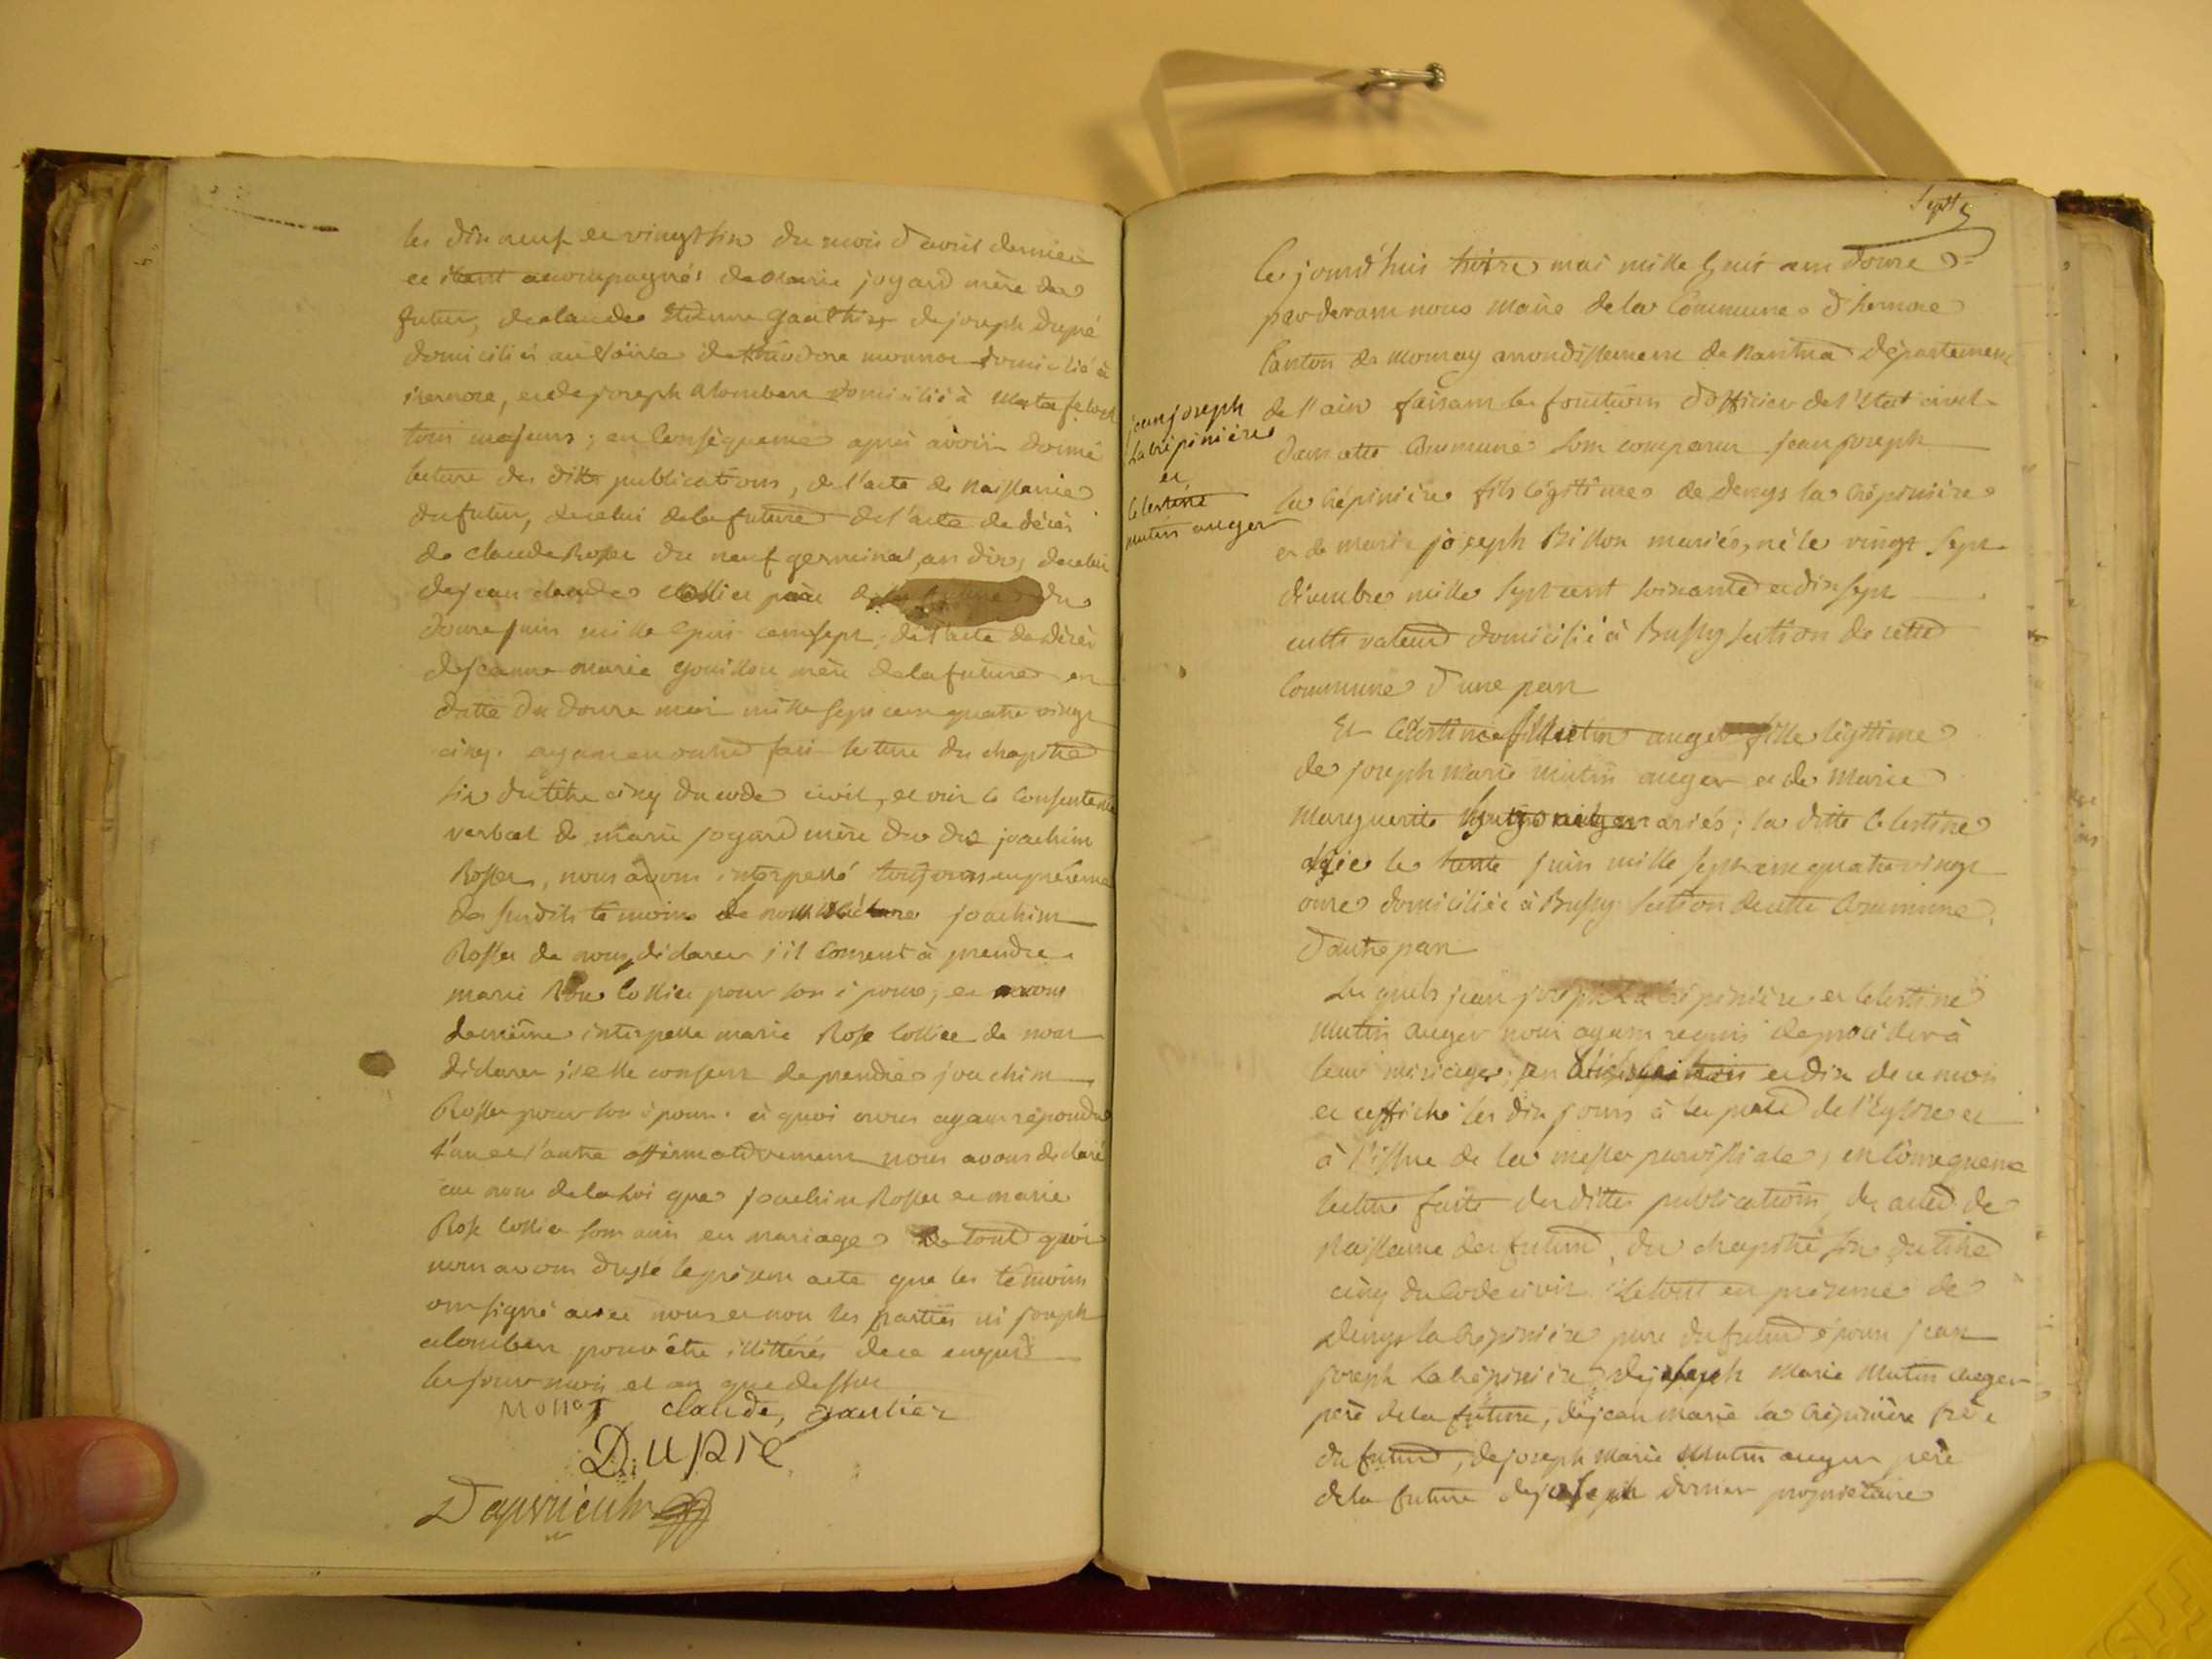 les dix neuf et vingt six du mois d'avril dernier
et étant accompagnés de marie jogard mère du
futur, de claude Etienne gauthier de joseph dupré
domiciliés de théodore monnot domicilié à
izernore, et de joseph alombert domicilié à Matafelon
tous majeurs; en Conséquence après avoir donné
lecture des dittes publications, de l'acte de naissance
du futur, de celui de la future de l'acte de décès
de claude Rosset du neuf germinal, an dix, de celui
de jean claude Collier père de la future du
douze juin mille huit cent sept, de l'acte de décès
de jeanne marie gouillon mère de la future en
datte du douze mai mille sept cent quatre vingt
cinq. ayant en outre fait lecture du chapitre
six du titre cinq du code civil, et vu le Consentement
verbal de marie jogard mère du dit joachim
Rosset, nous avons interpellé toujours en présence
des susdits témoins joachim
Rosset de nous déclarer s'il Consent à prendre
marie Rose Collier pour son épouse, et avons
de même interpellé marie Rose Collier de nous
déclarer si elle consent de prendre joachim
Rosset pour son époux. à quoi nous ayant répondu
l'un et l'autre affirmativement nous avons déclaré
au nom de la Loi que joachim Rosset et marie
Rose Collier sont unis en mariage de tout quoi
nous avons dressé le présent acte que les témoins
ont signé avec nous et non les parties ni joseph
alombert pour être illittérés de ce enquis
les jour mois et an que dessus
Monnot claude, gautier
Dupré

Sept
Ce jourd'huis treize mai mille huit cent douze
par devant nous Maire de la Commune d'hernore
Canton de Mornay arrondissement de Nantua département
de l'ain faisant les fonctions d'officier de l'état civil
dans cette Commune sont comparus jean joseph
la crépinière fils légitime de denys la crépinière
et de marie joseph Billon mariés, né le vingt sept
décembre mille sept cent soixante et dix sept
cultivateur domicilié à Bussy section de cette
Commune d'une part
jean joseph
la crépinière
et
Celestine
mutin auger
Et Celestine Mutin auger fille légitime
de joseph marie mutin auger et de Marie
Marguerite mariés; la ditte Celestine
née le trente juin mille sept cent quatre vingt
onze domiciliée à Bussy section de cette Commune,
d'autre part
Les quels jean joseph la crépinière et Celestine
Mutin auger nous ayant requis de procéder à
leur mariage, et dix de ce mois
et affiché les dix jours à la porte de l'Eglise et
à l'issue de la messe paroissiale, en Conséquence
lecture faite des dittes publications, des actes de
Naissance des futurs, du chapitre six du titre
cinq du Code civil. Le tout en présence de
denys la crépinière père du futur époux jean
joseph la crépinière, de joseph Marie Mutin auger
père de la future, de jean marie la crépinière frère
du futur, de joseph Marie Mutin auger père
de la future de joseph dernier propriétaire